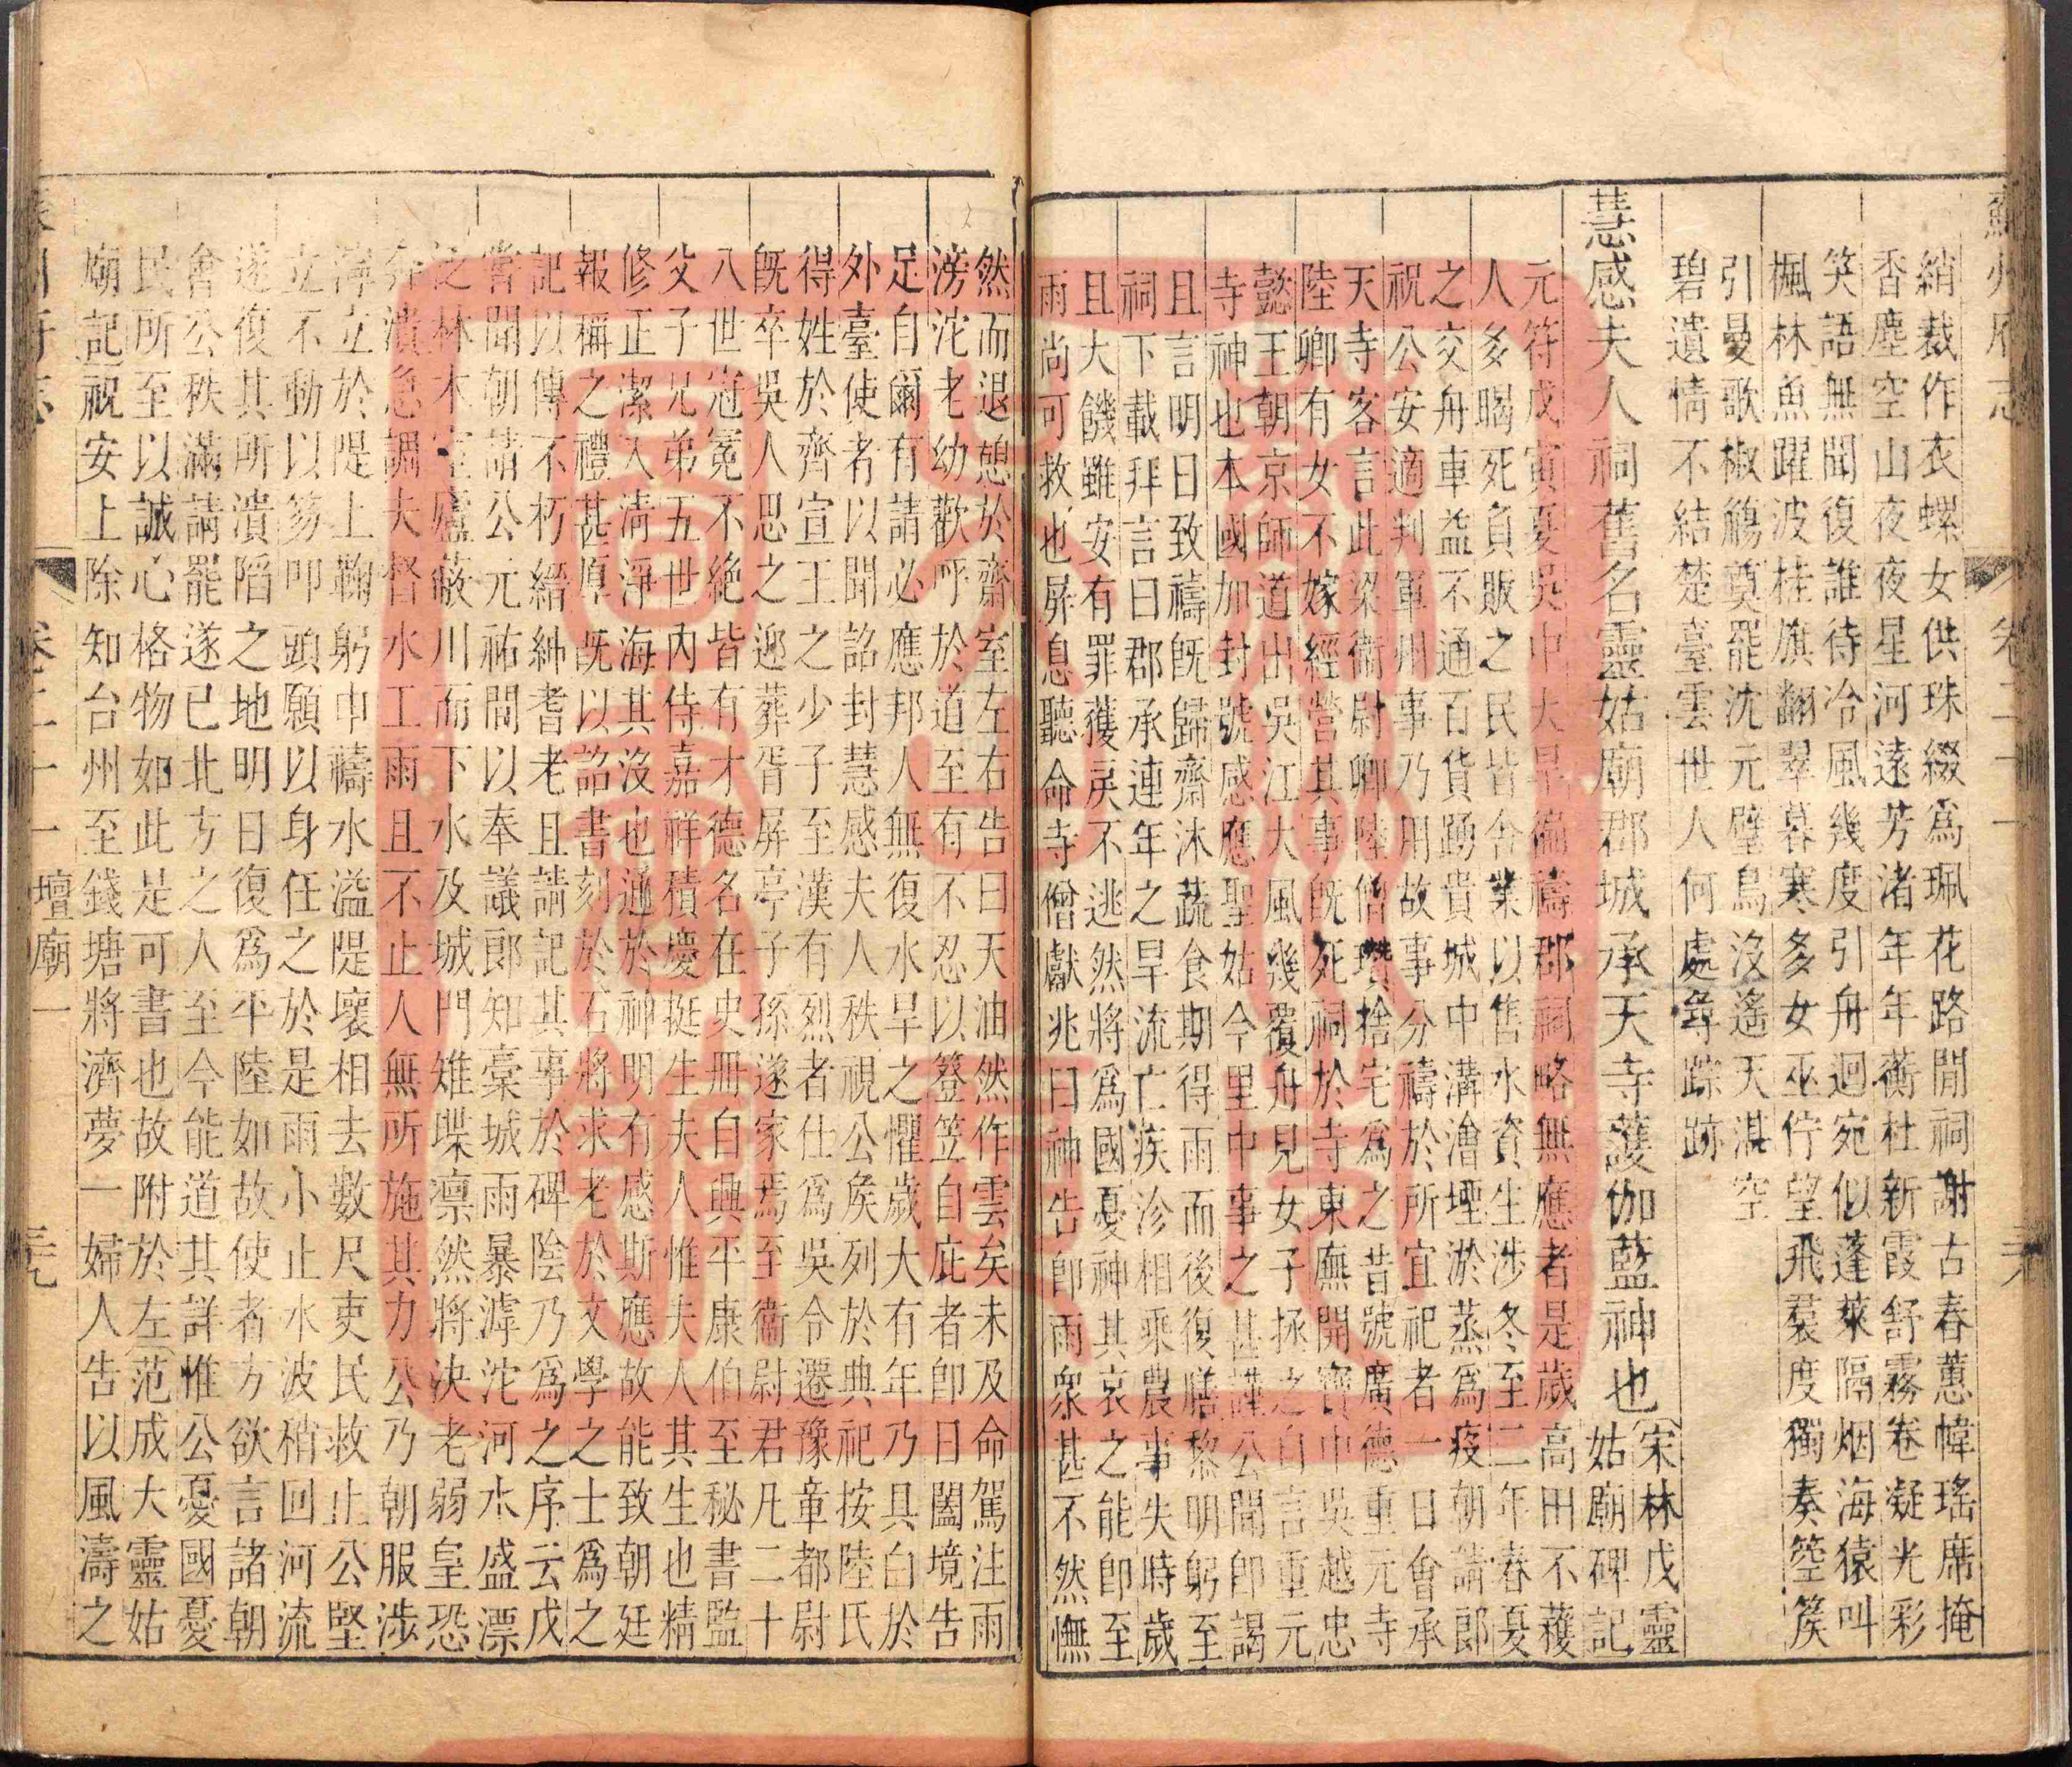 蘇州府志 卷二十一 三八
綃裁作衣螺女供珠綴爲珮花路閒祠謝古春蕙幃瑤席掩
香塵空山夜夜星河遠芳渚年年蘅杜新霞舒霧卷凝光彩
笑語無聞復誰待冷風幾度引舟迴宛似蓬萊隔烟海猿叫
楓林魚躍波桂旗翻翠暮寒多女巫佇望飛裘度獨奏箜篌
引曼歌椒觴奠罷沈元璧鳥沒遙天湛空
碧遺情不結楚臺雲世人何處尋踪跡
慧感夫人祠舊名靈姑廟郡城承天寺護伽藍神也
宋林戊靈
姑廟碑記
元符戊寅夏吳中大旱徧禱郡祠略無應者是歲高田不穫
人多暍死負販之民皆舍業以售水資生涉冬至二年春夏
之交舟車益不通百貨踴貴城中溝澮堙淤蒸爲疫朝請郎
祝公安適判軍州事乃用故事分禱於所宜祀者一日會承
天寺客言此梁衞尉卿陸僧瓚捨宅爲之昔號廣德重元寺
陸卿有女不嫁經營其事旣死祠於寺東廡開寶中吳越忠
懿王朝京師道出吳江大風幾覆舟見女子拯之自言重元
寺神也本國加封號感應聖姑今里中事之甚謹公聞卽謁
且言明日致禱旣歸齋沐蔬食期得雨而後復膳黎明躬至
祠下載拜言曰郡承連年之旱流亡疾沴相乘農事失時歲
且大饑雖安有罪獲戾不逃然將爲國憂神其哀之能卽至
雨尚可救也屏息聽命寺僧獻兆曰神告卽雨衆甚不然憮
然而退憩於齋室左右告曰天油然作雲矣未及命駕注雨
滂沱老幼歡呼於道至有不忍以簦笠自庇者卽日闔境告
足自爾有請必應邦人無復水旱之懼歲大有年乃具白於
外臺使者以聞詔封慧感夫人秩視公矦列於典祀按陸氏
得姓於齊宣王之少子至漢有烈者仕爲吳令遷豫章都尉
旣卒吳人思之迎葬胥屏亭子孫遂家焉至衞尉君凡二十
八世冠冕不絶皆有才德名在史冊自興平康伯至秘書監
父子兄弟五世內侍嘉祥積慶挺生夫人惟夫人其生也精
修正潔入淸淨海其沒也通於神明有感斯應故能致朝廷
報稱之禮甚厚旣以詔書刻於石將求老於文學之士爲之
記以傳不朽縉紳耆老且請記其事於碑陰乃爲之序云戊
嘗聞朝請公元祐間以奉議郎知藁城雨暴滹沱河水盛漂
泛林木室廬蔽川而下水及城門雉堞凛然將決老弱皇恐
奔潰急調夫督水工雨且不止人無所施其力公乃朝服涉
濘立於隄上鞠躬中禱水溢隄壞相去數尺吏民救止公堅
立不動以笏叩頭願以身任之於是雨小止水波稍回河流
遂復其所潰陷之地明日復爲平陸如故使者方欲言諸朝
會公秩滿請罷遂已北方之人至今能道其詳惟公憂國憂
民所至以誠心格物如此是可書也故附於左范成大靈姑
廟記祝安上除知台州至錢塘將濟夢一婦人告以風濤之
卷二十一 壇廟一 三九